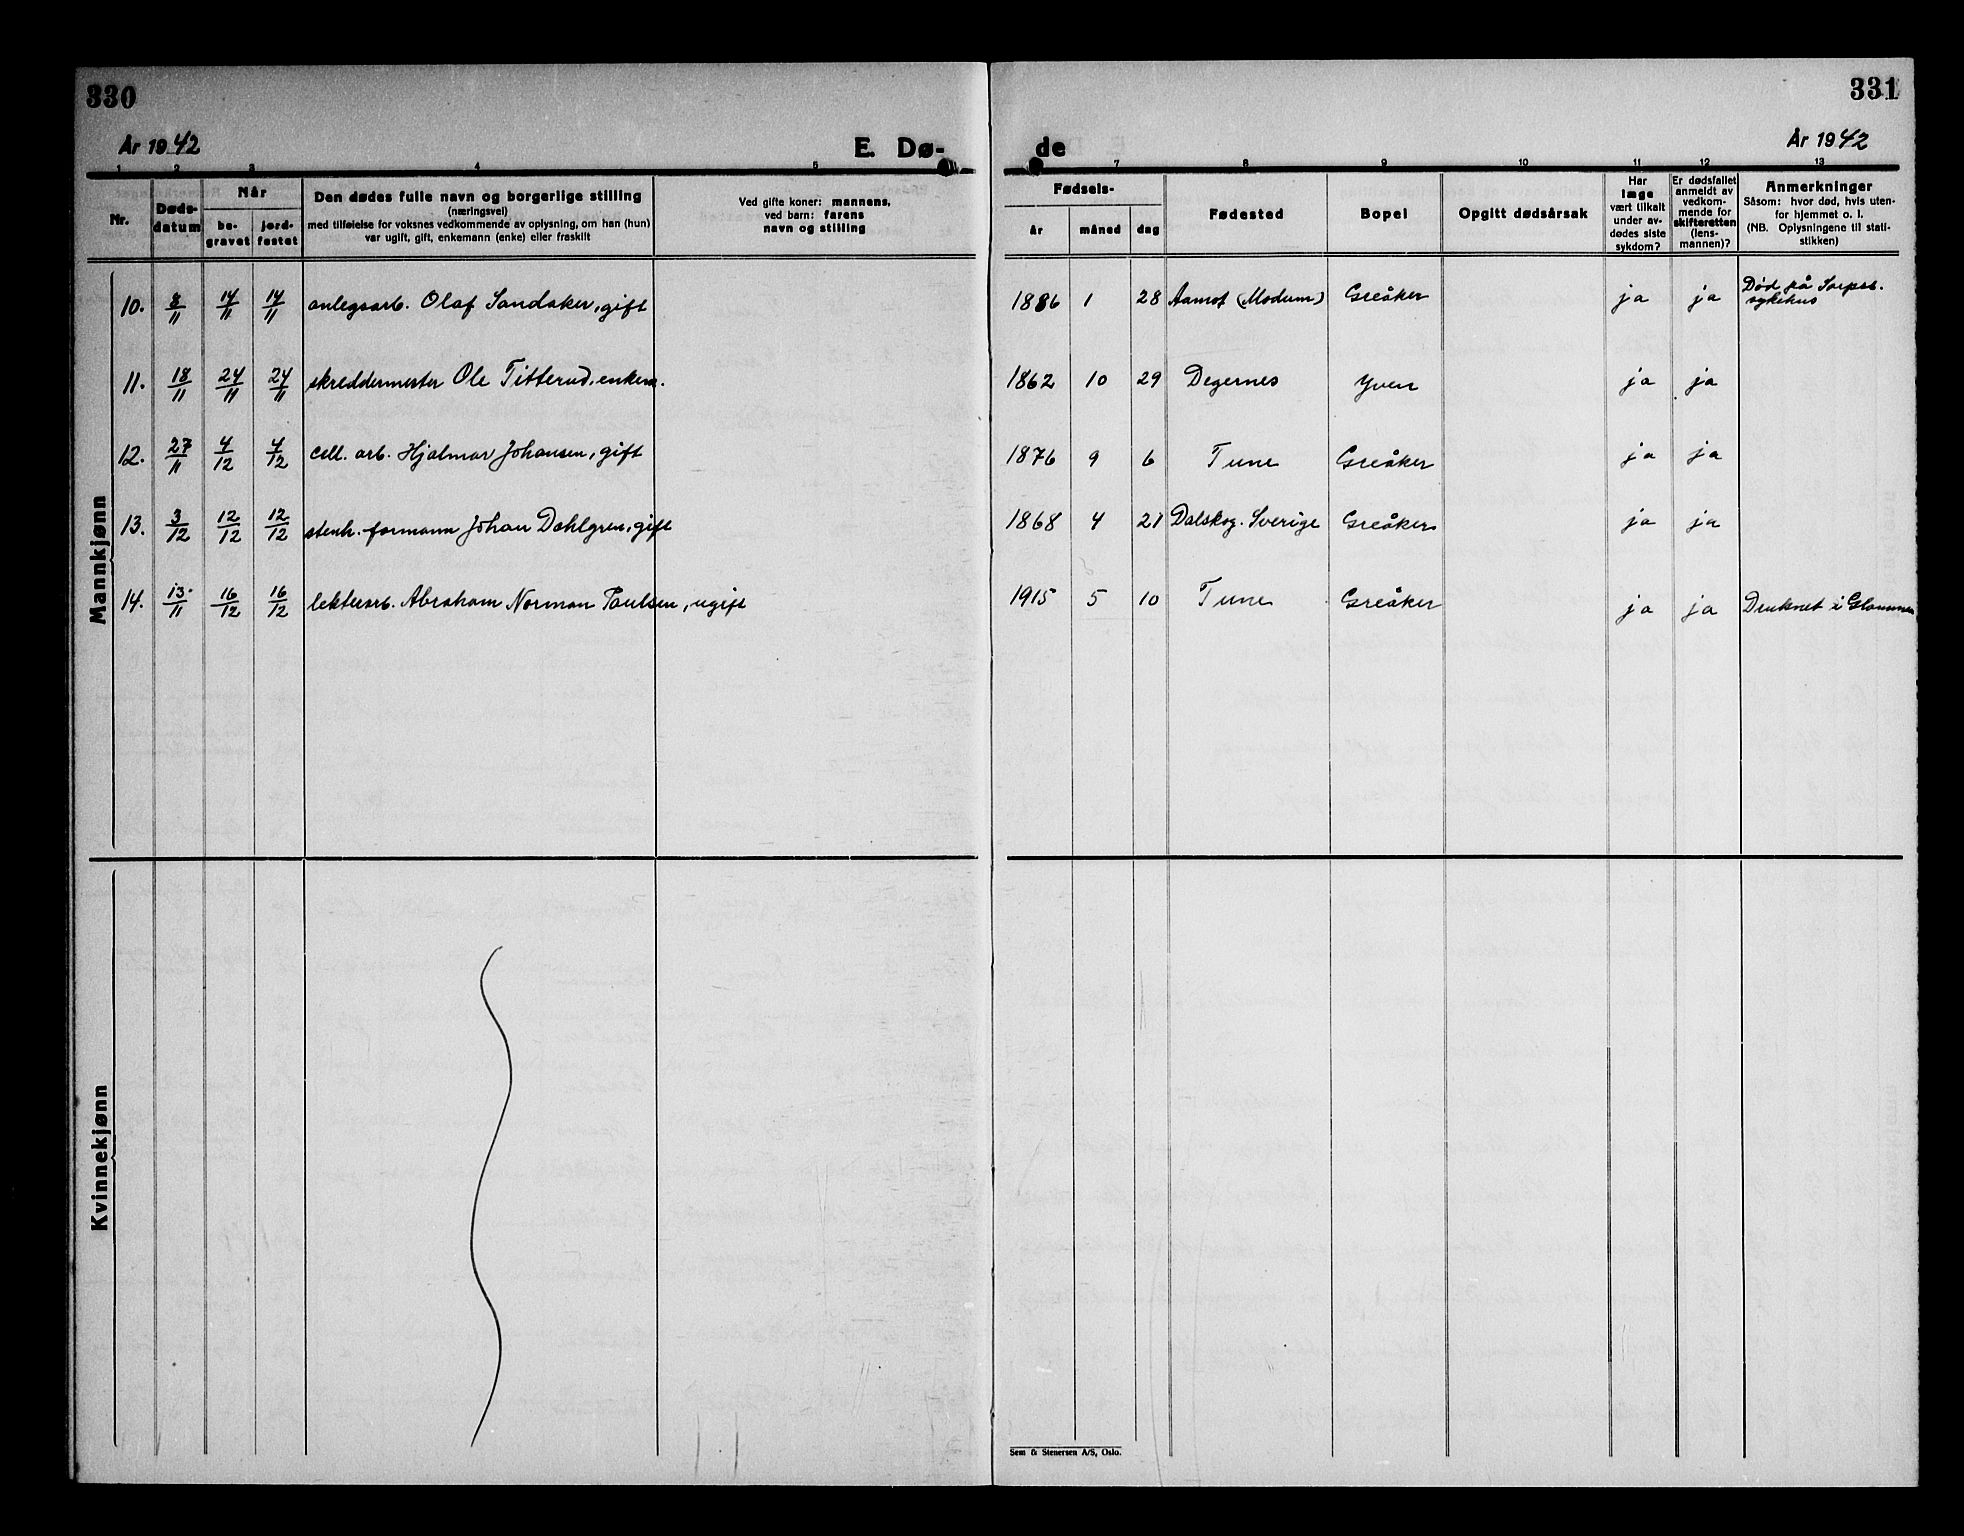 330
331
År 1942
E. Dø-
de
År 1942
1 2 3 4 5
7 8 9 10 11 12 13
Nr.
Døds-
datum
Når
be-
gravet
jord-
festet
Den dødes fulle navn og borgerlige stilling
(næringsvei)
med tilføielse for voksnes vedkommende av oplysning, om han (hun)
var ugift, gift, enkemann (enke) eller fraskilt
Ved gifte koner: mannens,
ved barn: farens
navn og stilling
Fødsels-
år måned dag
Fødested
Bopel
Opgitt dødsårsak
Har
læge
vært tilkalt
under av-
dødes siste
sykdom?
Er dødsfallet
anmeldt av
vedkom-
mende for
skifteretten
(lens-
mannen)?
Anmerkninger
Såsom: hvor død, hvis uten-
for hjemmet o. l.
(NB. Oplysningene til stati-
stikken)
Mannkjønn
10. 8/11 14/11 14/11 anlegsarb. Olaf Sandaker, gift 1886 1 28 Aamot (Modum) Greåker ja ja Død på Sarpsb.
sykehus
11. 18/11 24/11 24/11 skreddermester Ole Titterud, enkem. 1862 10 29 Degernes Yven ja ja
12. 27/11 4/12 4/12 cell. arb. Hjalmar Johansen, gift 1876 9 6 Tune Greåker ja ja
13. 3/12 12/12 12/12 stenh. formann Johan Dahlgren, gift 1868 4 21 Dalskog. Sverige Greåker ja ja
14. 13/11 16/12 16/12 lekterarb. Abraham Norman Paulsen, ugift 1915 5 10 Tune Greåker ja ja Druknet i Glommen
Kvinnekjønn
Sem & Stenersen A/S, Oslo.